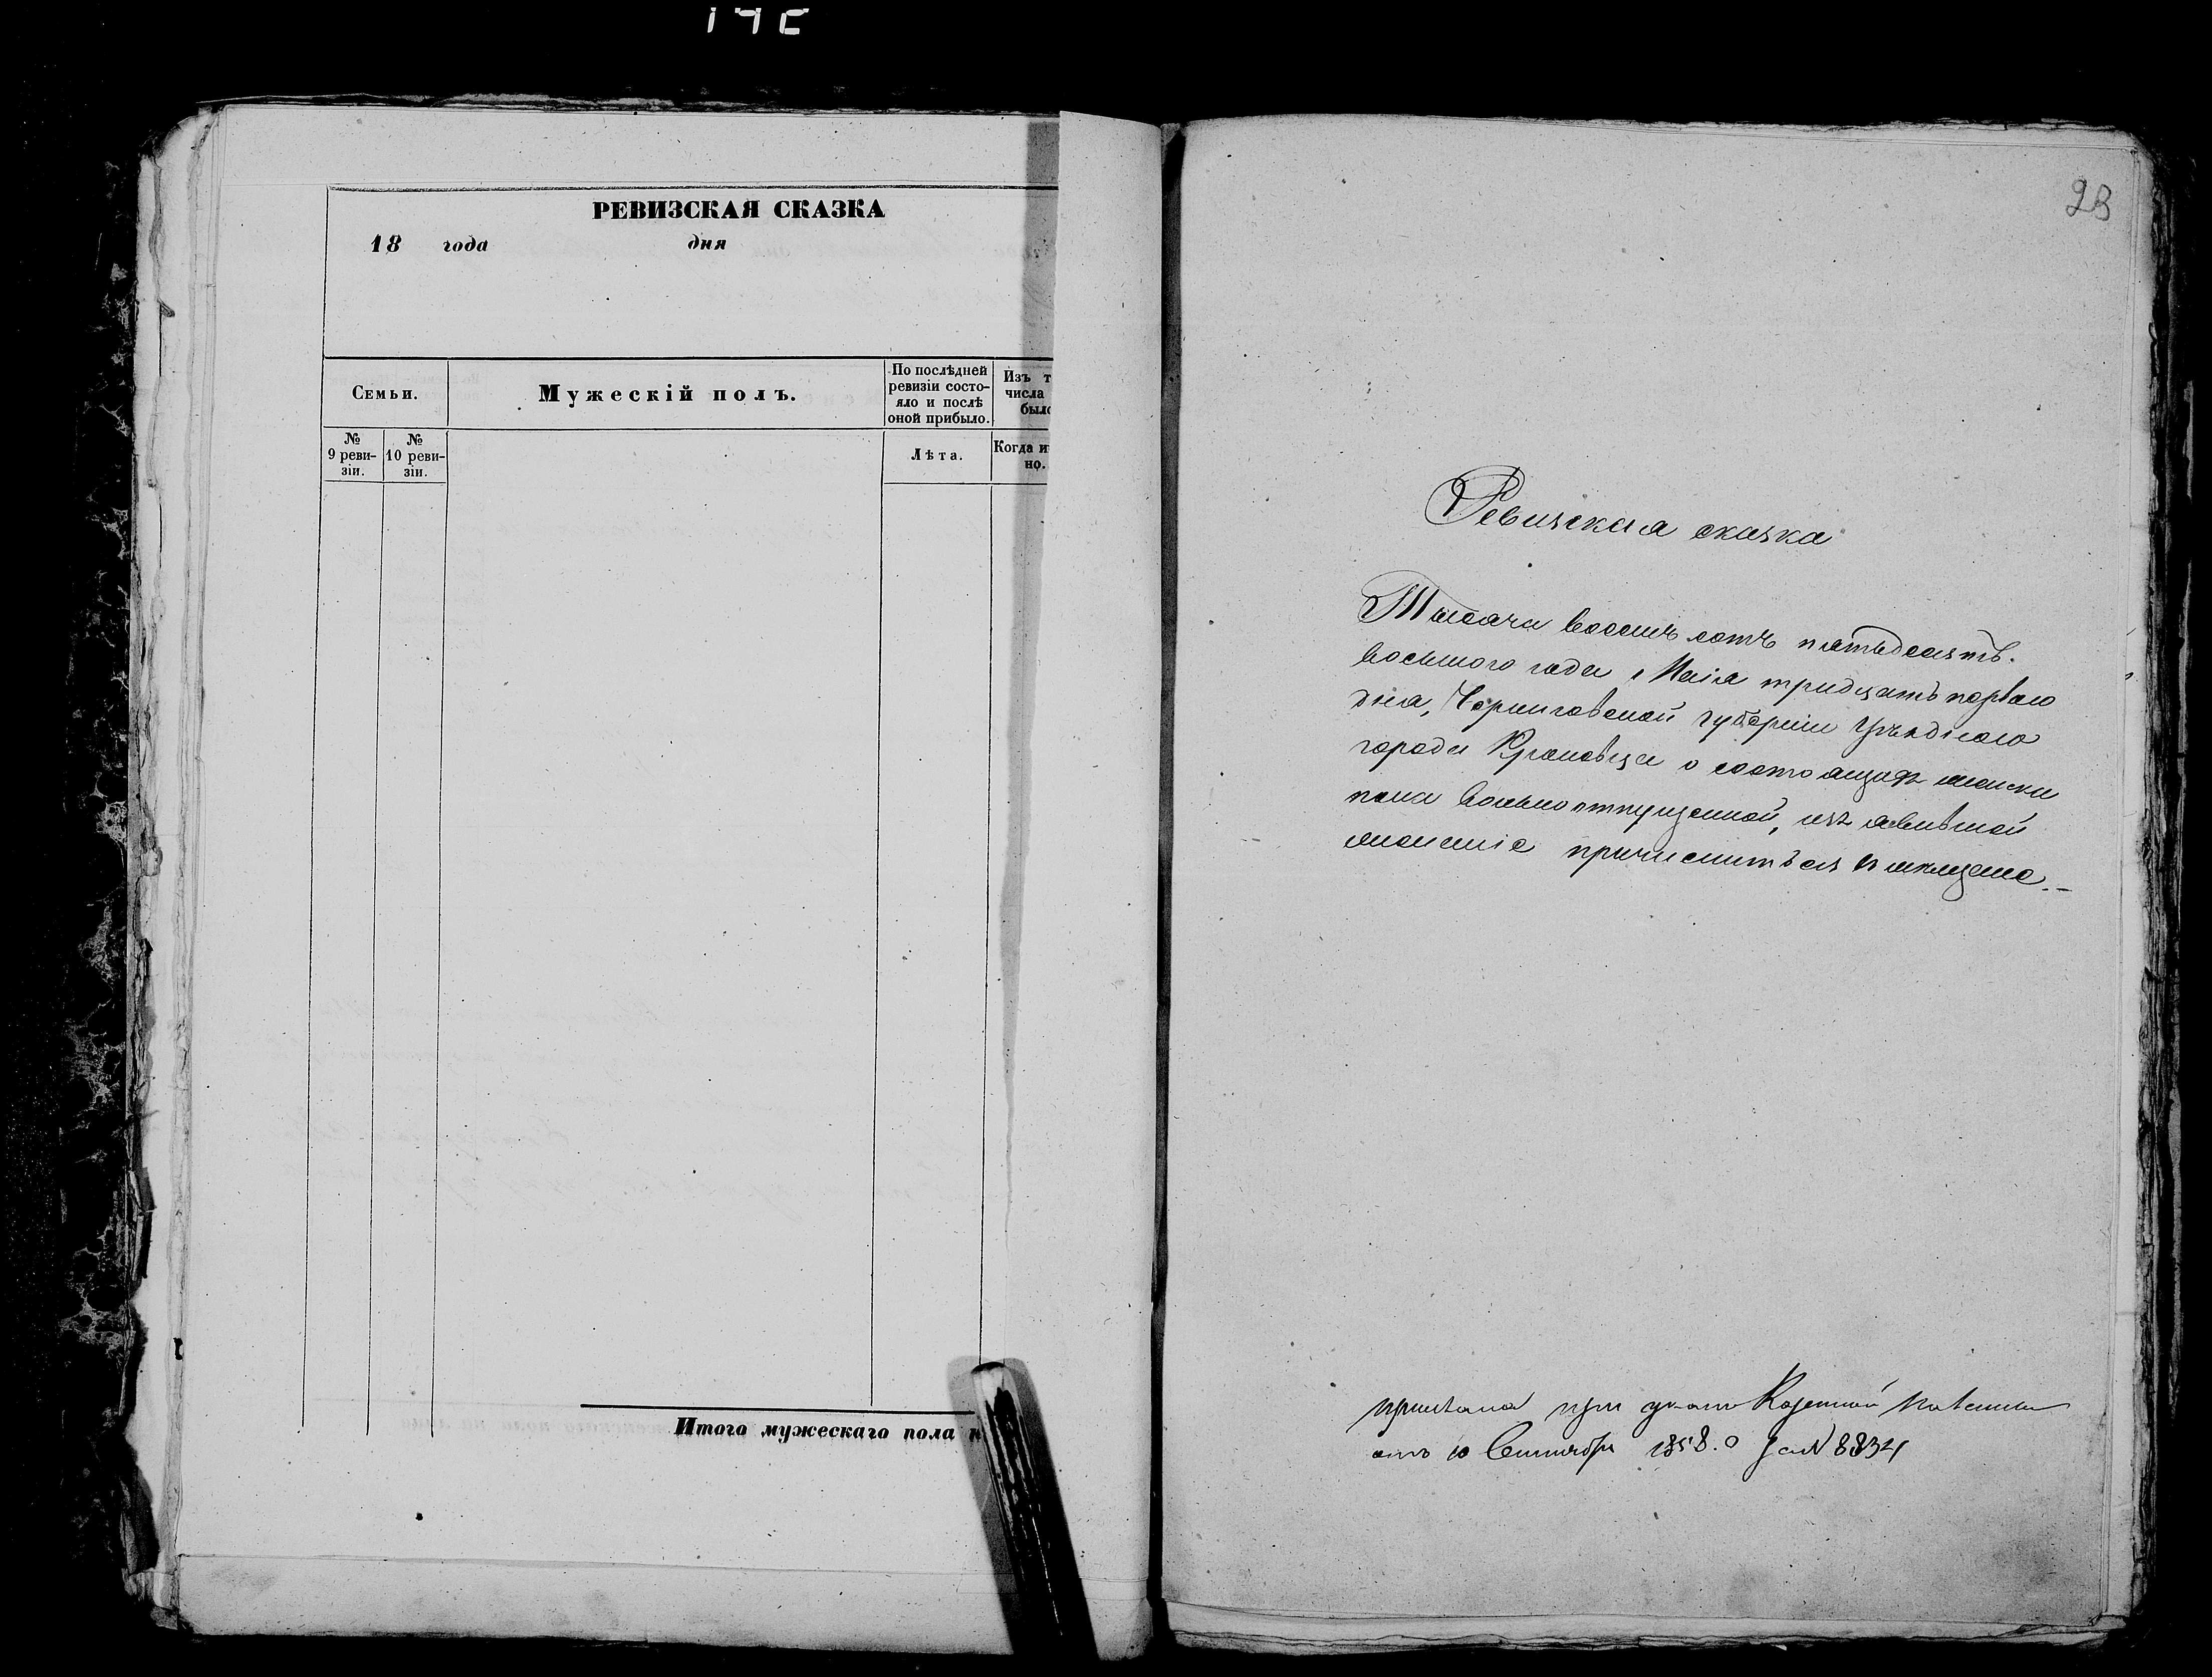 РЕВИЗСКАЯ СКАЗКА
18 года дня
Семьи.
Мужескій полъ.
По послѣдней
ревизіи состо-
яло и послѣ
оной прибыло.
Изъ т
числа
было
№
9 реви-
зіи.
№
10 реви-
зіи.
Лѣта.
Когда и
но.
Итого мужескаго пола н
23
Ревизская сказка
Тысяча восемь сотъ пятьдесятъ.
восьмого года Маія тридцать перваго
дня, Черниговской губерніи уѣзднаго
города Кролевца о состоящей женски
пола вольноотпущенной, изъявившой
желаніе причислиться
при Казенной Палаты
отъ 10 Сентября 1858. за № 8834